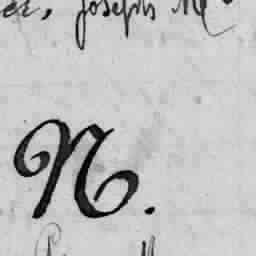 er, Joseph Mc
N.